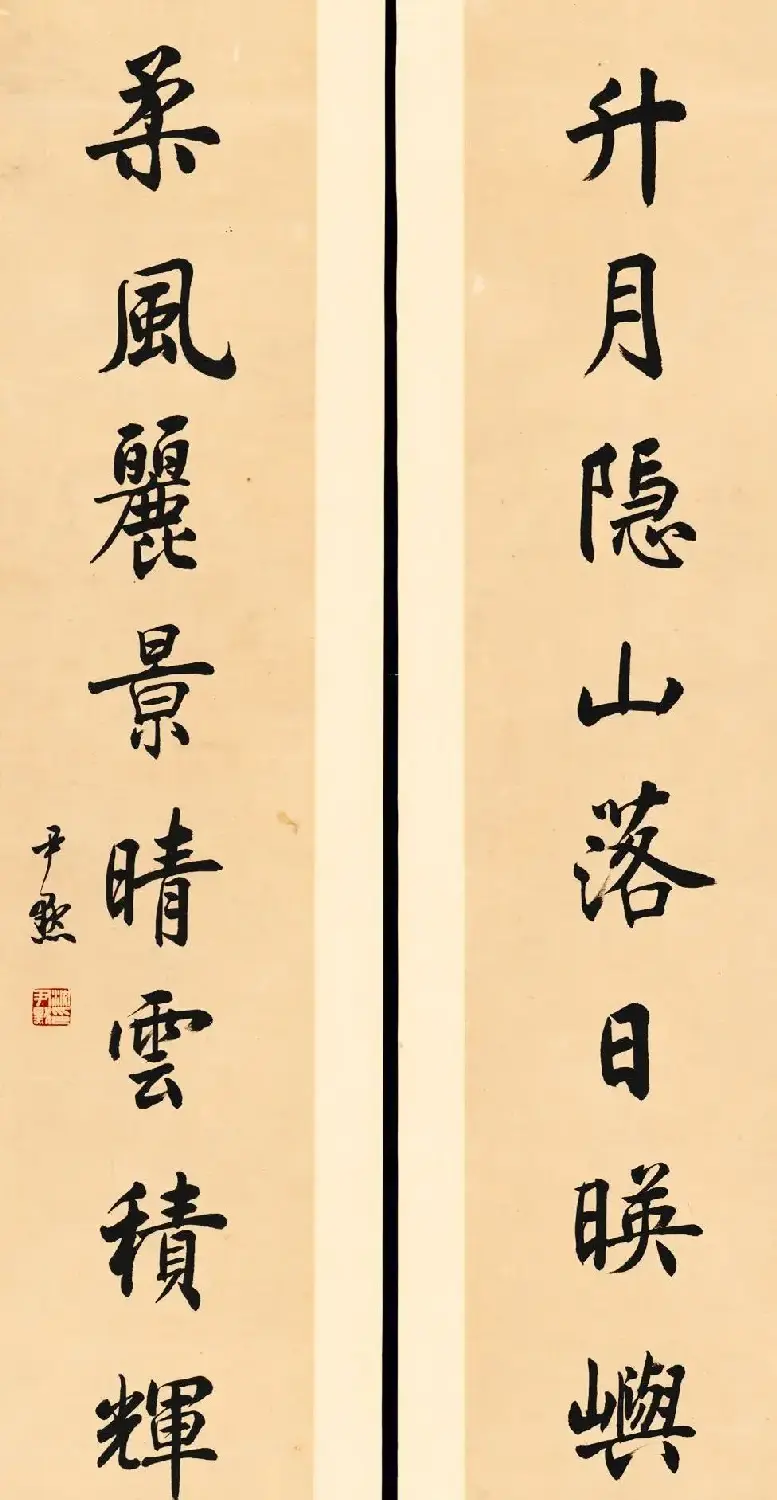 升月隐山落日暎嶼
柔風麗景晴雲積輝
尹默